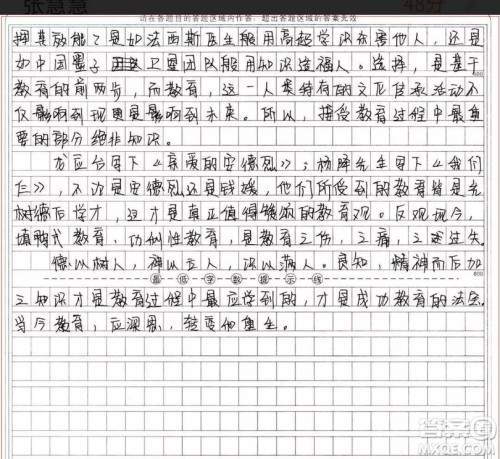 张慧慧 48分
请在各题目的答题区域内作答,超出各题区域的答案无效
择其效能了是如法西斯医生般用高超学识在害他人,还是
如中国援 卫生团队般用知识造福人。选择,是基于
教育的前两步,而教育,这一人类特有的文化传承活动不
仅影响到现更是影响到未来。所以,接受教育过程中最重
要的部分绝非知识。
龙应台写下《亲爱的安德烈》;杨绛先生写下《我们
仨》,不论是安德烈还是钱媛,他们所受到的教育皆是先
树德后学才,这才是真正值得颂的教育观。反观现今,
填鸭式教育、功利性教育,是教育之伤,之痛,之过失。
德以树人,神以立人,识以满人。良知,精神而后加
最低字数提示线
之知识才是教育过程中最应学到的,才是成功教育的法
当今教育,应深思,轻重重生。
800
答案圈
MXQE.COM